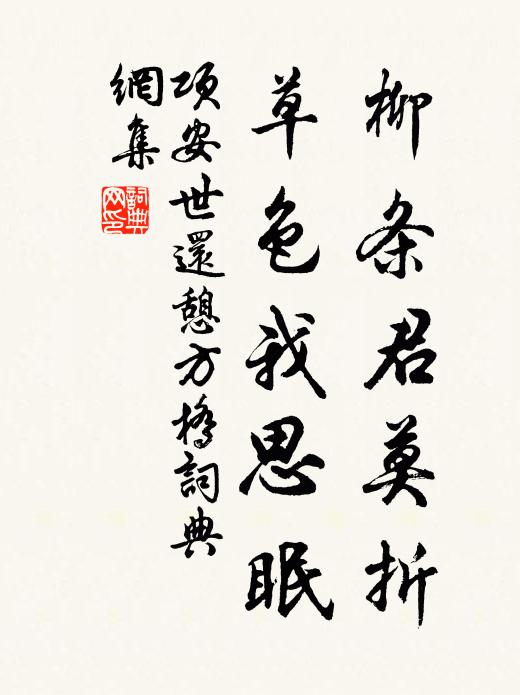 柳条君莫折
草色我思眠
项安世還憩方橋詞典
網集
詞典网印